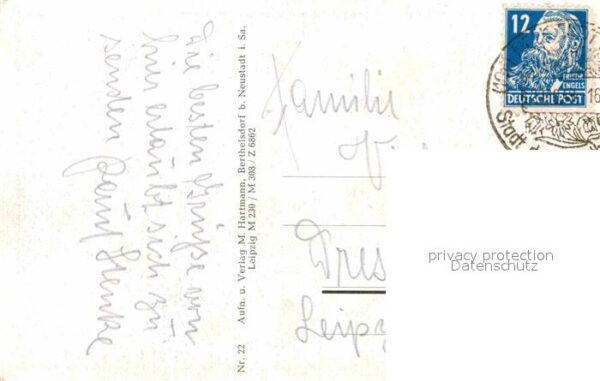 Die besten Grüße von
hier erlaubt sich zu
senden Paul
Nr. 22 Aufn. u. Verlag M. Hartmann, Berthelsdorf b. Neustadt i. Sa.
Leipzig M 230 / M 308 / Z 6862
Familie
Dres
Leipz
12
FRIEDR.
ENGELS
DEUTSCHE POST
16
Stadt
privacy protection
Datenschutz